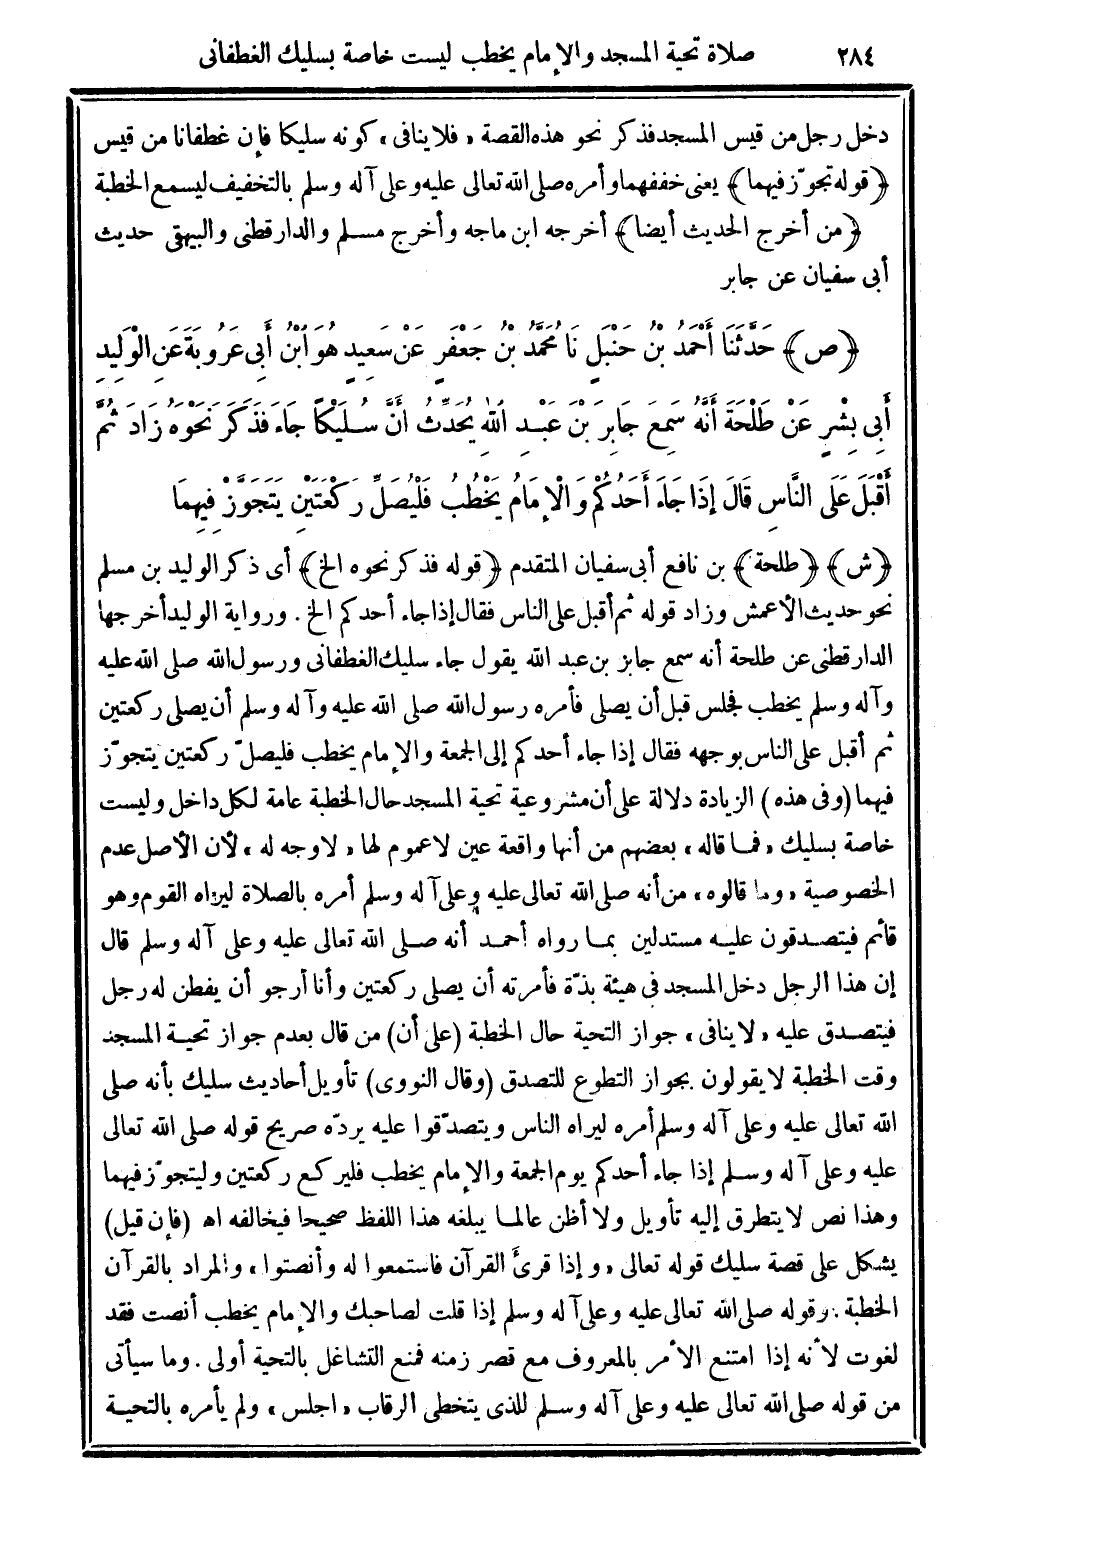 ٢٨٤ صلاة تحية المسجد والإمام يخطب ليست خاصة بسليك الغطفانى
دخل رجل من قيس المسجد فذكر نحو هذه القصة «فلا ينافى» كونه سليكا فإن غطفانا من قيس
﴿قوله تجوّز فيهما﴾ يعنى خففهما وأمره صلى الله تعالى عليه وعلى آله وسلم بالتخفيف ليسمع الخطبة
﴿من أخرج الحديث أيضا﴾ أخرجه ابن ماجه وأخرج مسلم والدارقطنى والبيهقى حديث
أبى سفيان عن جابر
﴿ص﴾ حَدَّثَنَا أَحْمَدُ بْنُ حَنْبَلٍ نَا مُحَمَّدُ بْنُ جَعْفَرٍ عَنْ سَعِيدٍ هُوَ ابْنُ أَبِى عَرُوبَةَ عَنِ الْوَلِيدِ
أَبِى بِشْرٍ عَنْ طَلْحَةَ أَنَّهُ سَمِعَ جَابِرَ بْنَ عَبْدِ اللهِ يُحَدِّثُ أَنَّ سُلَيْكًا جَاءَ فَذَكَرَ نَحْوَهُ زَادَ ثُمَّ
أَقْبَلَ عَلَى النَّاسِ قَالَ إِذَا جَاءَ أَحَدُكُمْ وَالْإِمَامُ يَخْطُبُ فَلْيُصَلِّ رَكْعَتَيْنِ يَتَجَوَّزْ فِيهِمَا
﴿ش﴾ ﴿طلحة﴾ بن نافع أبى سفيان المتقدم ﴿قوله فذكر نحوه الخ﴾ أى ذكر الوليد بن مسلم
نحو حديث الأعمش وزاد قوله ثم أقبل على الناس فقال إذا جاء أحدكم الخ . ورواية الوليد أخرجها
الدارقطنى عن طلحة أنه سمع جابر بن عبد الله يقول جاء سليك الغطفانى ورسول الله صلى الله عليه
وآله وسلم يخطب فجلس قبل أن يصلى فأمره رسول الله صلى الله عليه وآله وسلم أن يصلى ركعتين
ثم أقبل على الناس بوجهه فقال إذا جاء أحدكم إلى الجمعة والإمام يخطب فليصلّ ركعتين يتجوّز
فيهما (وفى هذه) الزيادة دلالة على أن مشروعية تحية المسجد حال الخطبة عامة لكل داخل وليست
خاصة بسليك «فما قاله» بعضهم من أنها واقعة عين لا عموم لها «لا وجه له» لأن الأصل عدم
الخصوصية «وما قالوه» من أنه صلى الله تعالى عليه وعلى آله وسلم أمره بالصلاة ليراه القوم وهو
قائم فيتصدقون عليه مستدلين بما رواه أحمد أنه صلى الله تعالى عليه وعلى آله وسلم قال
إن هذا الرجل دخل المسجد فى هيئة بذّة فأمرته أن يصلى ركعتين وأنا أرجو أن يفطن له رجل
فيتصدق عليه «لا ينافى» جواز التحية حال الخطبة (على أن) من قال بعدم جواز تحية المسجد
وقت الخطبة لا يقولون بجواز التطوع للتصدق (وقال النووى) تأويل أحاديث سليك بأنه صلى
الله تعالى عليه وعلى آله وسلم أمره ليراه الناس ويتصدّقوا عليه يردّه صريح قوله صلى الله تعالى
عليه وعلى آله وسلم إذا جاء أحدكم يوم الجمعة والإمام يخطب فليركع ركعتين وليتجوّز فيهما
وهذا نص لا يتطرق إليه تأويل ولا أظن عالما يبلغه هذا اللفظ صحيحا فيخالفه اه (فإن قيل)
يشكل على قصة سليك قوله تعالى «وإذا قرئ القرآن فاستمعوا له وأنصتوا» والمراد بالقرآن
الخطبة . وقوله صلى الله تعالى عليه وعلى آله وسلم إذا قلت لصاحبك والإمام يخطب أنصت فقد
لغوت لأنه إذا امتنع الأمر بالمعروف مع قصر زمنه فمنع التشاغل بالتحية أولى . وما سيأتى
من قوله صلى الله تعالى عليه وعلى آله وسلم للذى يتخطى الرقاب «اجلس» ولم يأمره بالتحية